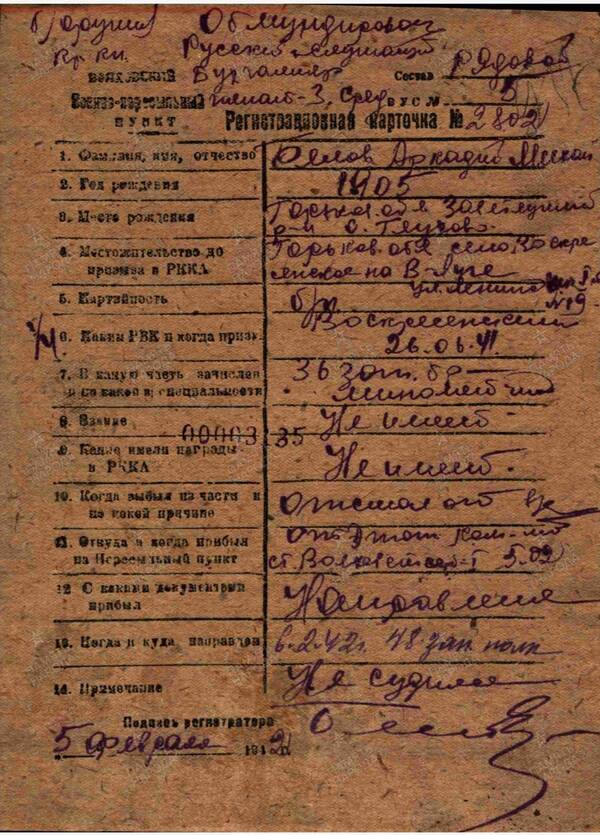 б/оружия Обмундирован
Кр. кн. Русский служащий
ВОЛХОВСКИЙ Бухгалтер Состав рядовой
Военно-пересыльный 3, сред ВУС № 5
ПУНКТ Регистрационная карточка № 2802
1. Фамилия, имя, отчество Белов Аркадий Михай
2. Год рождения 1905
3. Место рождения Горьков. обл.
р-н с. Глухово
4. Местожительство до Горьков. обл село Воскре
призыва в РККА сенское на Ветлуге
ул. Ленина
№ 19
5. Партийность б/п.
6. Каким РВК и когда призв. Воскресенский
26.06.41
7. В какую часть зачислен 36 зап. бр
и по какой специальности Миномётчик
8. Звание Не имеет
00003335
9. Какие имели награды Не имеет.
в РККА
10. Когда выбыл из части и Отстал от
по какой причине
11. Откуда и когда прибыл От Этап. ком-
на Пересыльный пункт ст. 5.02
12. С какими документами Направлен
прибыл
13. Когда и куда направлен 6.2.42г. 48 зап полк
14. Примечание Не судился
Подпись регистратора
5 февраля 1942